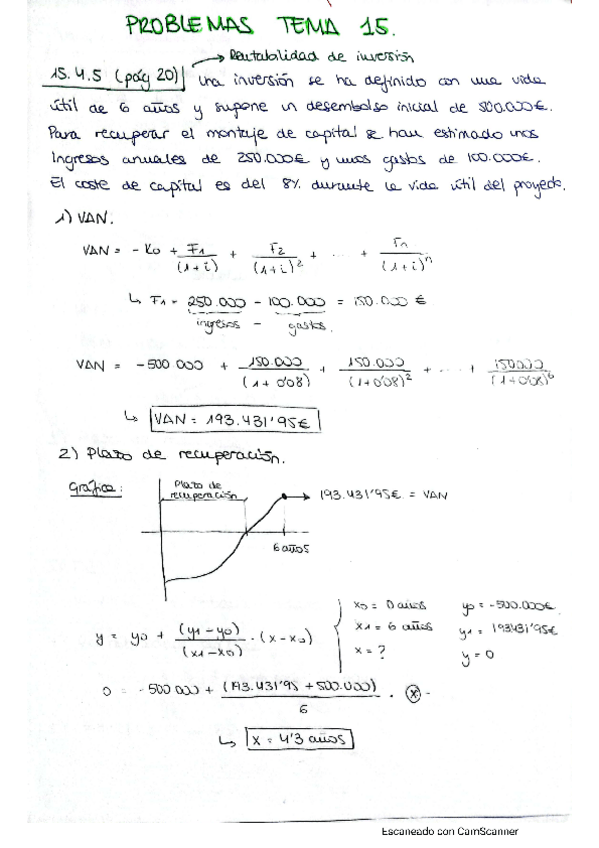 PROBLEMAS TEMA 15.
→ Rentabilidad de inversión
15.4.5 (pág 20) Una inversión se ha definido con una vida
útil de 6 años y supone un desembolso inicial de 500.000€.
Para recuperar el montaje de capital se han estimado unos
Ingresos anuales de 250.000€ y unos gastos de 100.000€.
El coste de capital es del 8% durante la vida útil del proyecto.
1) VAN.
VAN = - K0 + F1/(1+i) + F2/(1+i)^2 + ... + Fn/(1+i)^n
↳ F1 = 250.000 - 100.000 = 150.000 €
ingresos - gastos.
VAN = -500 000 + 150.000/(1+0'08) + 150.000/(1+0'08)^2 + ... + 150000/(1+0'08)^6
↳ VAN = 193.431'95€
2) Plazo de recuperación.
Gráfica:
Plazo de
recuperación
→ 193.431'95€ = VAN
6 años
x0 = 0 años y0 = -500.000€.
y = y0 + (y1-y0)/(x1-x0) · (x-x0)
x1 = 6 años y1 = 193431'95€
x = ? y = 0
0 = -500 000 + (193.431'95 + 500.000)/6 · x
↳ x = 4'3 años
Escaneado con CamScanner